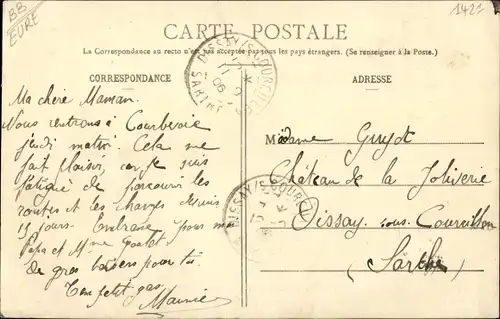 BB
EURE
1421
CARTE POSTALE
La Correspondance au recto n'est pas acceptée par tous les pays étrangers. (Se renseigner à la Poste.)
CORRESPONDANCE
ADRESSE
Ma chère Maman.
Nous rentrons à Courbevoie
jeudi matin. Cela me
fait plaisir, car je suis
fatigué de parcourir les
routes et les depuis
15 jours. Embrasse pour moi
Papa et Mme
De gros baisers pour toi.
Ton petit gas.
Madame Guyot
Château de la Joliverie
Dissay sous Courcillon
(Sarthe)
DISSAY-S-COURCILLON
SARTHE
06
DISSAY-S-COURCILLON